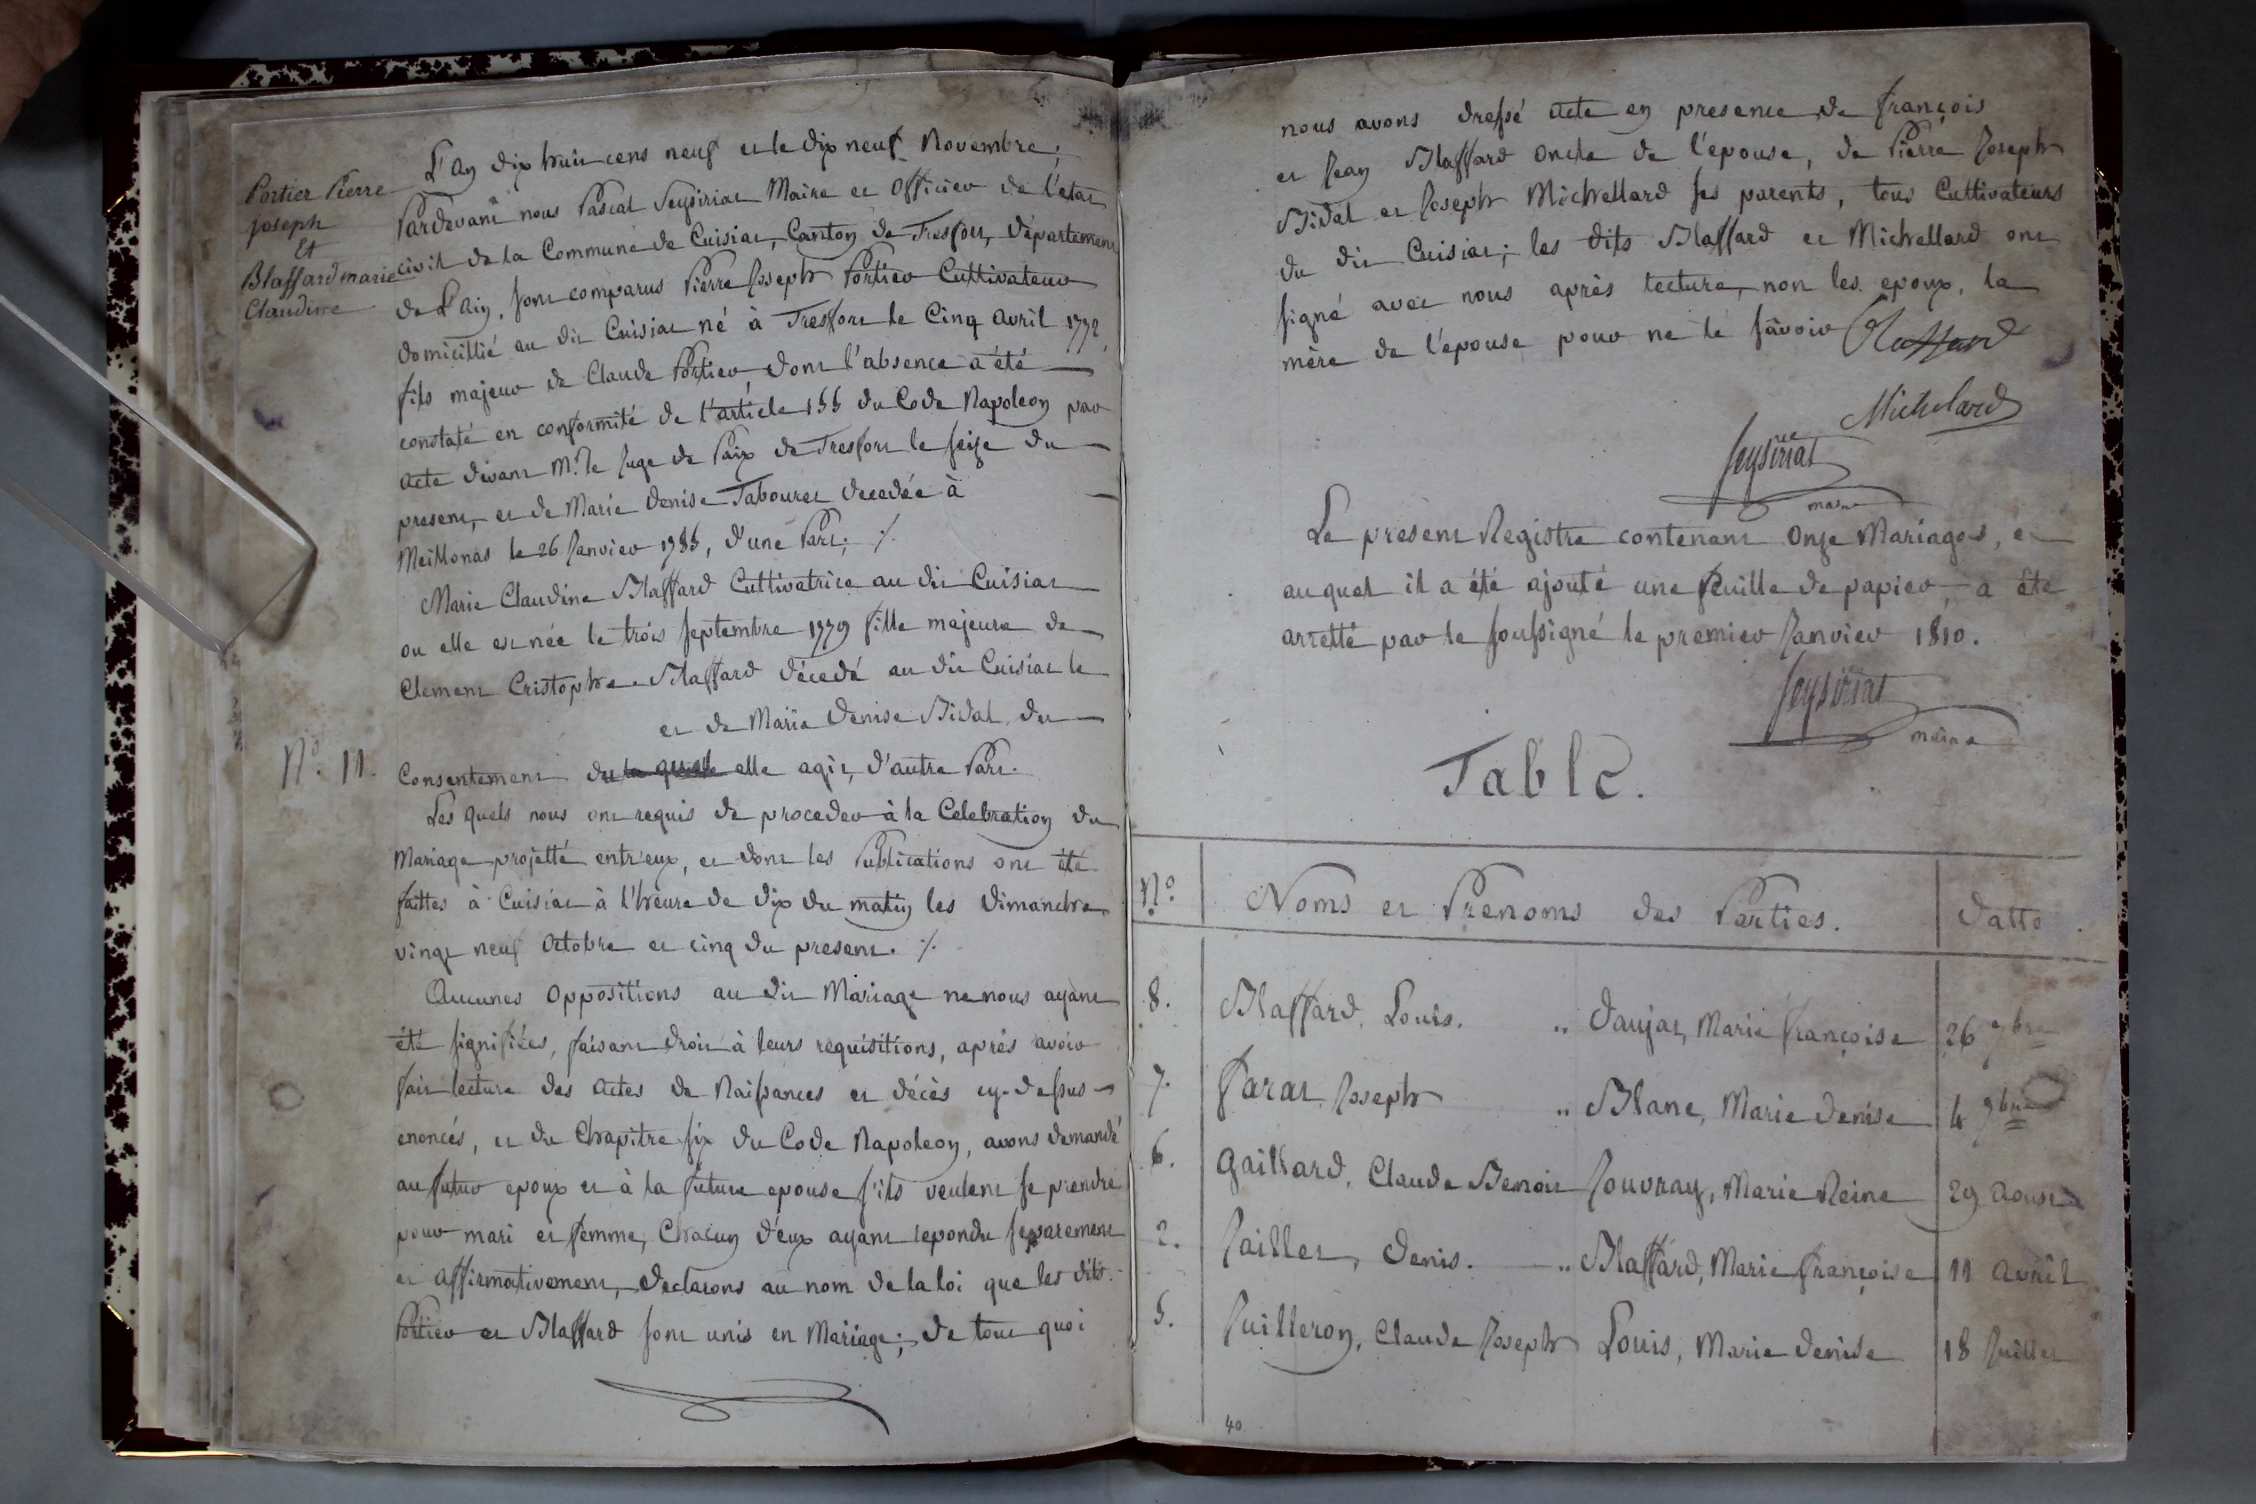 Portier Pierre
joseph
Et
Blaffard marie
Claudine
N.º 11.
L'an dix huit cent neuf et le dix neuf Novembre,
Pardevant nous Pascal Seysiriat Maire et Officier de l'etat
civil de la Commune de Cuisiat, Canton de Treffort, département
de L'ain, sont comparus Pierre Joseph Portier Cultivateur
domicillié au dit Cuisiat né à Treffort le Cinq avril 1772,
fils majeur de Claude Portier dont l'absence a été
constaté en conformité de l'article 155 du Code Napoleon par
acte devant Mr. le Juge de Paix de Treffort le seize du
present, et de Marie Denise Tabouret decedée à
Meillonas le 26 Janvier 1785, d'une Part; ./.
Marie Claudine Blaffard Cultivatrice au dit Cuisiat
ou elle est née le trois septembre 1779 fille majeure de
Clement Cristophe Blaffard décedé au dit Cuisiat le
et de Marie Denise Bidal, du
Consentement du la quelle elle agit, d'autre Part.
Les quels nous ont requis de proceder à la Celebration du
Mariage projetté entr'eux, et dont les Publications ont été
faittes à Cuisiat à l'heure de dix du matin les dimanches
vingt neuf Octobre et cinq du present. ./.
Aucunes Oppositions au dit Mariage ne nous ayant
été signifiées, faisant droit à leurs requisitions, aprés avoir
fait lecture des actes de Naissances et décès cy-dessus
enoncés, et du Chapitre six du Code Napoleon, avons demandé
au futur epoux et à la future epouse s'ils veulent se prendre
pour mari et femme, Chacun d'eux ayant repondu separement
et affirmativement, declarons au nom de la loi que les dits
Portier et Blaffard sont unis en Mariage; de tout quoi
nous avons dressé acte en presence de françois
et Jean Blaffard oncle de l'épouse, de Pierre Joseph
Bidal et Joseph Michellard ses parents, tous Cultivateurs
du dit Cuisiat; les dits Blaffard et Michellard ont
signé avec nous après lecture, non les epoux, la
mère de l'épouse pour ne le sâvoir Blaffard
Michelard
Seysiriat
maire
Le present Registre contenant Onze Mariages, et
auquel il a été ajouté une feuille de papier, a été
arretté par le soussigné le premier Janvier 1810.
Seysiriat
maire
Table.
N.º Noms et Prenoms des Parties. datte.
8. Blaffard, Louis. .. Daujat, Marie françoise 26 7bre
7. Farat, Joseph .. Blanc, Marie denise 4 7bre
6. Gaillard, Claude Benoit Jouvray, Marie Reine 29 Aoust
2. Jaillet, Denis. .. Blaffard, Marie françoise 11 avril
5. Juilleron, Claude Joseph Louis, Marie Denise 18 Juillet
40